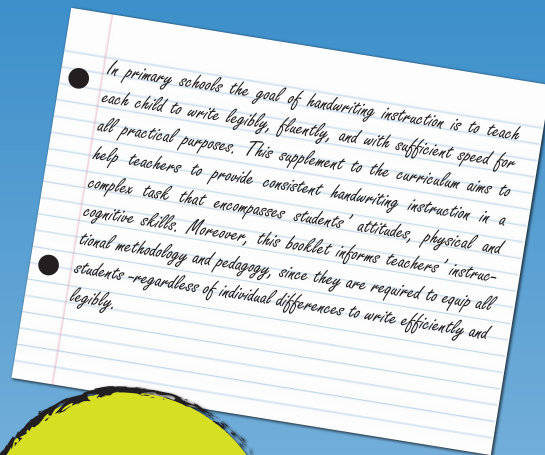 In primary schools the goal of handwriting instruction is to teach
each child to write legibly, fluently, and with sufficient speed for
all practical purposes. This supplement to the curriculum aims to
help teachers to provide consistent handwriting instruction in a
complex task that encompasses students' attitudes, physical and
cognitive skills. Moreover, this booklet informs teachers' instruc-
tional methodology and pedagogy, since they are required to equip all
students -regardless of individual differences to write efficiently and
legibly.